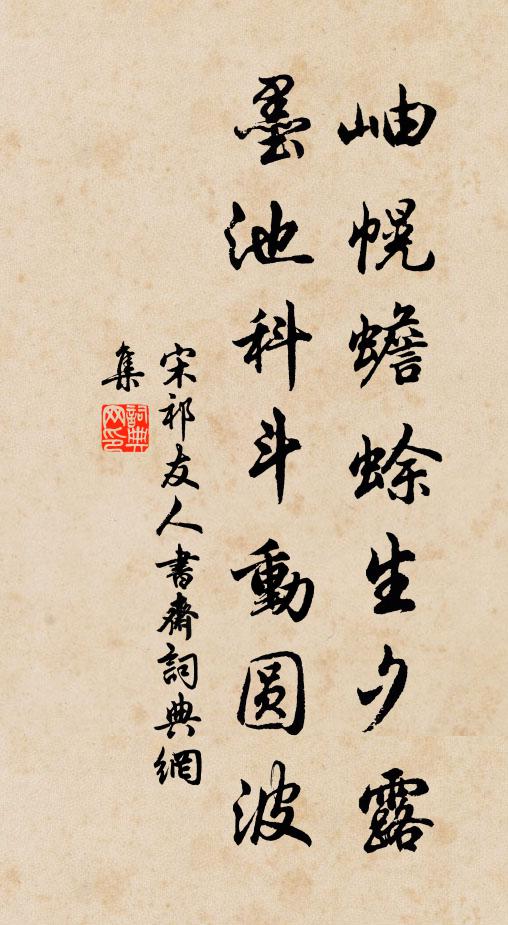 岫幌蟾蜍生夕露
墨池科斗動圆波
宋祁友人書齋詞典網
集
詞典网印